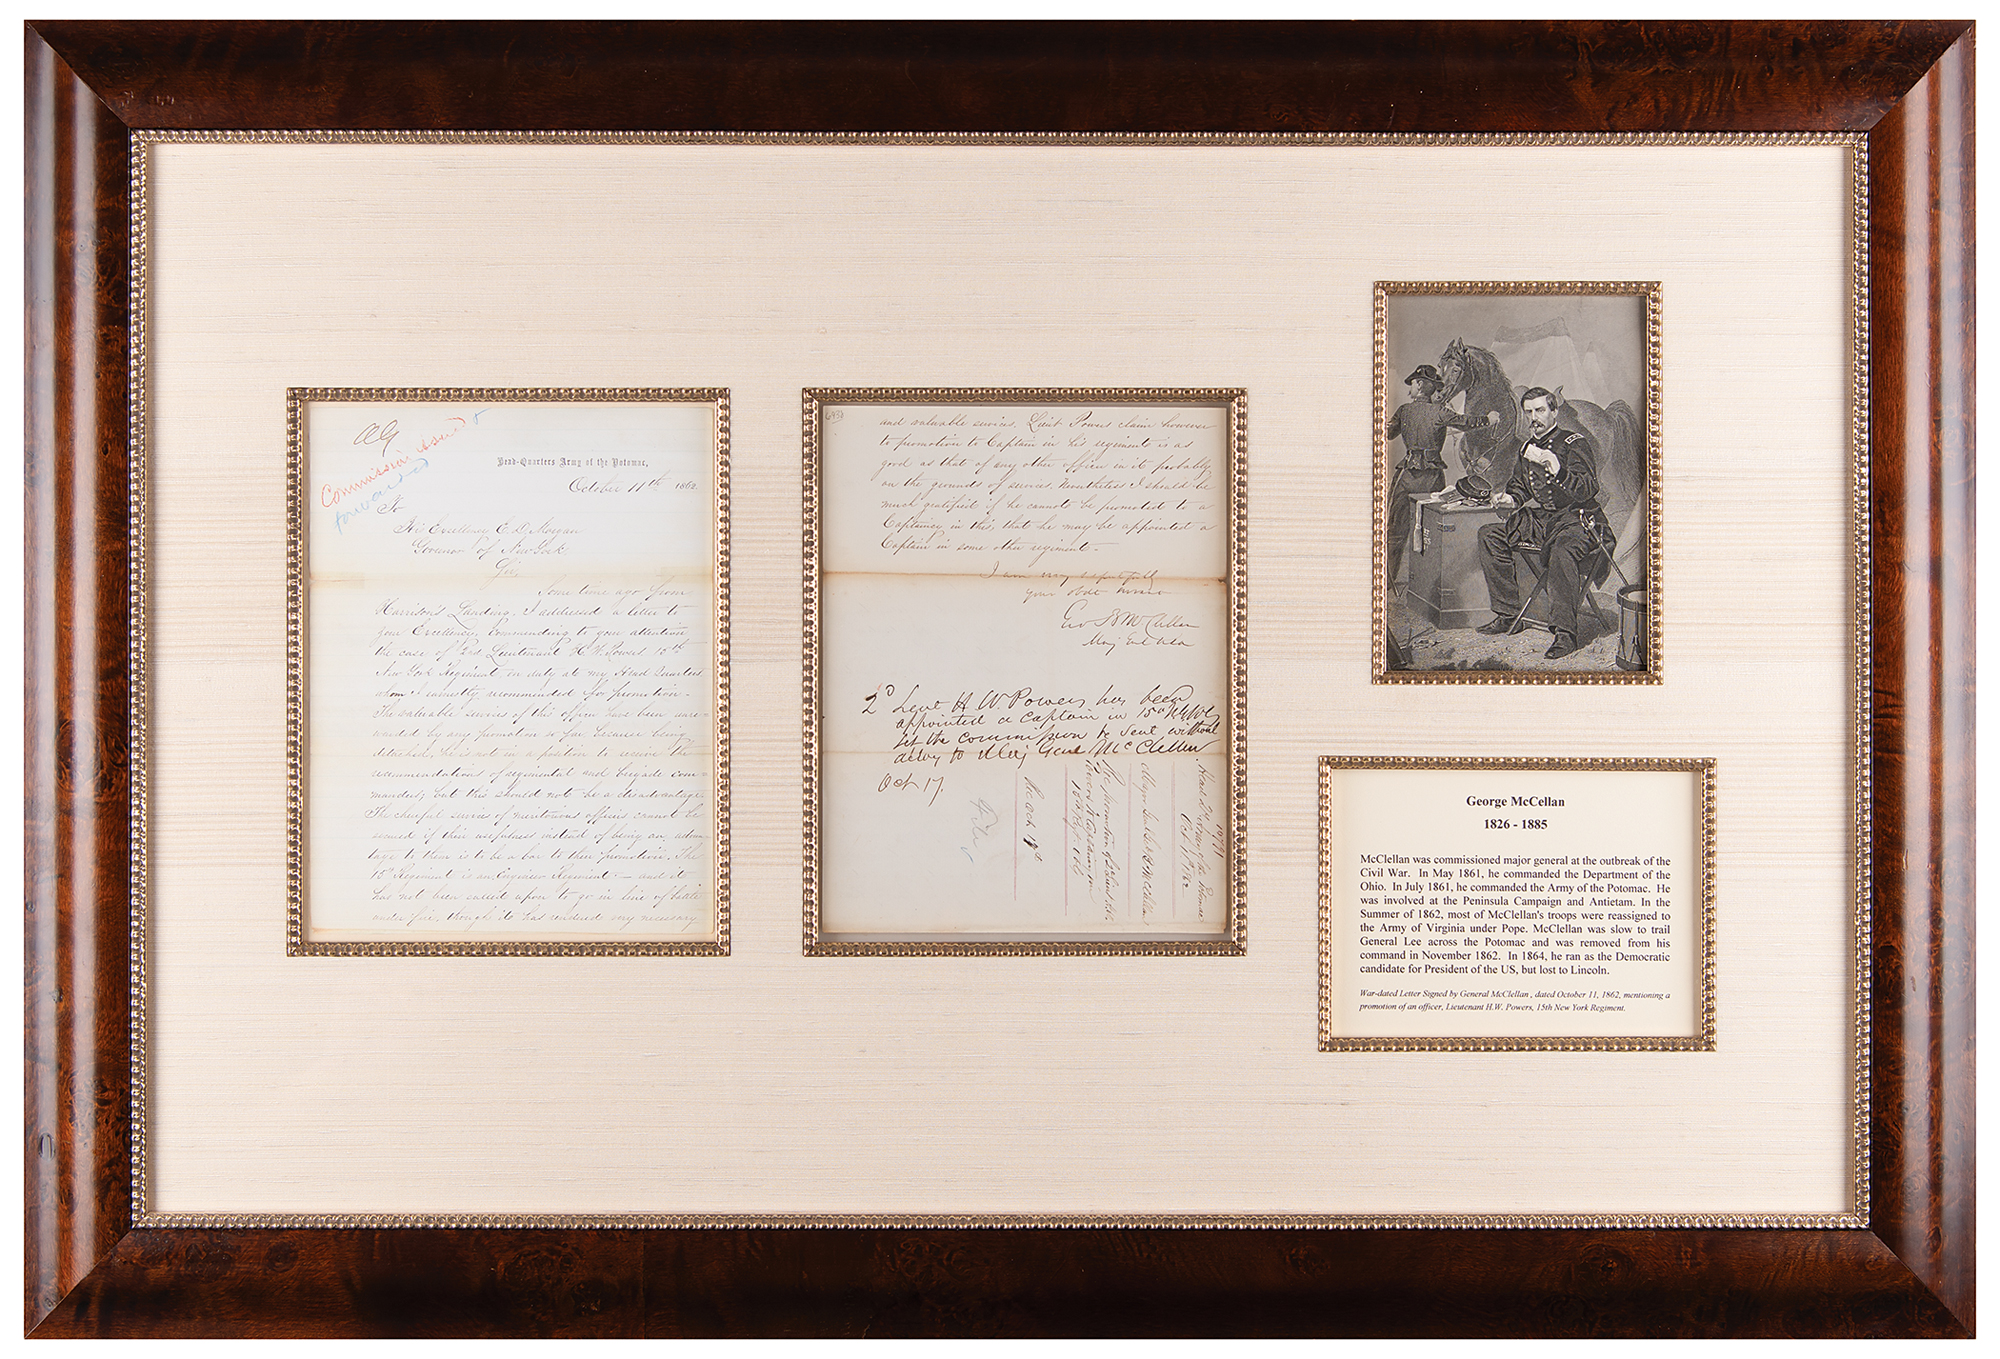 Commission issued &
forwarded
Head-Quarters Army of the Potomac,
October 11th 1862.
To
His Excellency E. D. Morgan
Governor of New York
Sir,
Some time ago from
Harrison's Landing, I addressed a letter to
your Excellency, commending to your attention
the case of 2nd Lieutenant H. W. Powers 15th
New York Regiment on duty at my Head Quarters
whom I earnestly recommended for promotion.
The valuable services of this officer have been unre-
warded by any promotion so far because being
detached, he is not in a position to receive the
recommendations of regimental and brigade com-
manders, but this should not be a disadvantage.
The cheerful services of meritorious officers cannot be
secured if their usefulness instead of being an advan-
tage to them is to be a bar to their promotion. The
15th Regiment is an Engineer Regiment — and it
has not been called upon to go in line of battle
under fire, though it has rendered very necessary
6938
and valuable services. Lieut Powers claim however
to promotion to Captain in his regiment is as
good as that of any other officer in it probably
on the grounds of service. Nevertheless I should be
much gratified if he cannot be promoted to a
Captaincy in this, that he may be appointed a
Captain in some other regiment.
I am very respectfully
your obdt servant
Geo B McClellan
Maj Genl USA
2d Lieut H. W. Powers has been
appointed a Captain in 15th NYVols
let the commission be sent without
delay to Maj Genl McClellan
Oct 17.
Head Qrs Army of the Potomac
Oct 11th 1862
Major Genl G B McClellan
Rec. promotion of Lieut H. W.
Powers to Captaincy in
15th Regt Vol
Rec Oct 17th
File
George McCellan
1826 - 1885
McClellan was commissioned major general at the outbreak of the
Civil War. In May 1861, he commanded the Department of the
Ohio. In July 1861, he commanded the Army of the Potomac. He
was involved at the Peninsula Campaign and Antietam. In the
Summer of 1862, most of McClellan's troops were reassigned to
the Army of Virginia under Pope. McClellan was slow to trail
General Lee across the Potomac and was removed from his
command in November 1862. In 1864, he ran as the Democratic
candidate for President of the US, but lost to Lincoln.
War-dated Letter Signed by General McClellan, dated October 11, 1862, mentioning a
promotion of an officer, Lieutenant H.W. Powers, 15th New York Regiment.